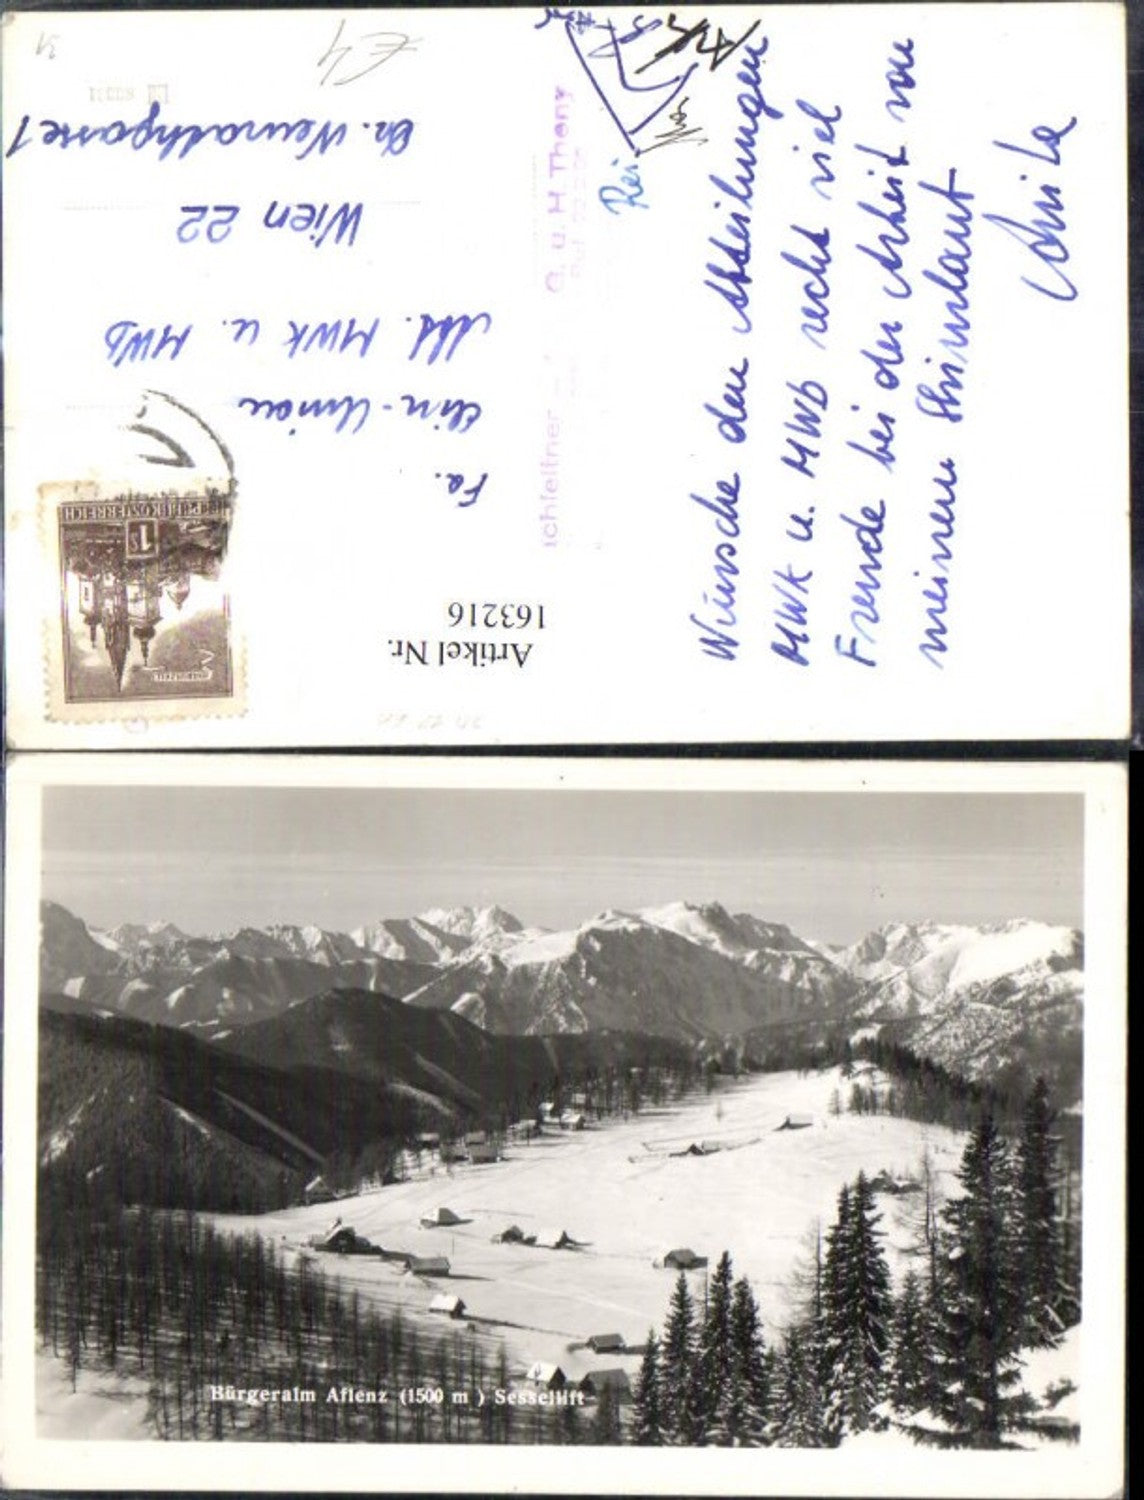 Wünsche den Abteilungen
MWK u. MWD recht viel
Freude bei der Arbeit von
meinem Skiurlaub
Rei
G. u. H. Thony
Fa.
Elin-Union
Abt. MWK u. MWD
Wien 22
Dr. Neurathgasse 1
€4
31
REPUBLIK ÖSTERREICH
1 S
Artikel Nr.
163216
Bürgeralm Aflenz (1500 m) Sessellift